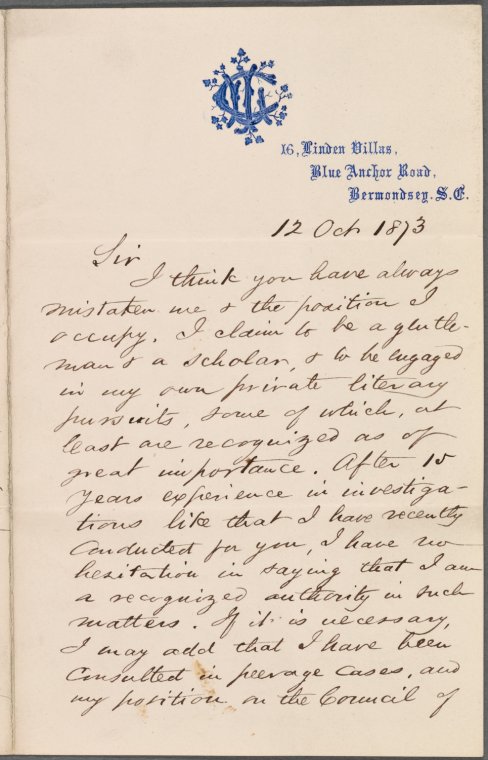 16, Linden Villas,
Blue Anchor Road,
Bermondsey. S.E.
12 Oct 1873
Sir
I think you have always
mistaken me & the position I
occupy. I claim to be a gentle-
man & a scholar, & to be engaged
in my own private literary
pursuits, some of which, at
least are recognized as of
great importance. After 15
years experience in investiga-
tions like that I have recently
conducted for you, I have no
hesitation in saying that I am
a recognized authority in such
matters. If it is necessary,
I may add that I have been
consulted in peerage cases, and
my position on the Council of